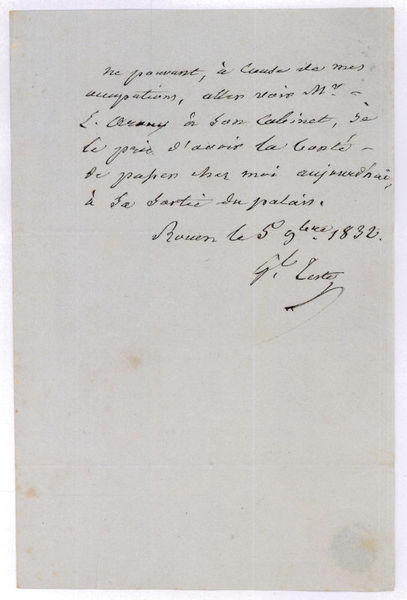 ne pouvant, à Cause de mes
occupations, aller voir Mr.
à son Cabinet, Je
le prie d'avoir la bonté
de passer chez moi aujourdhui,
à Sa Sortie du palais.
Rouen le 5 9bre. 1832.
Gl. Teste